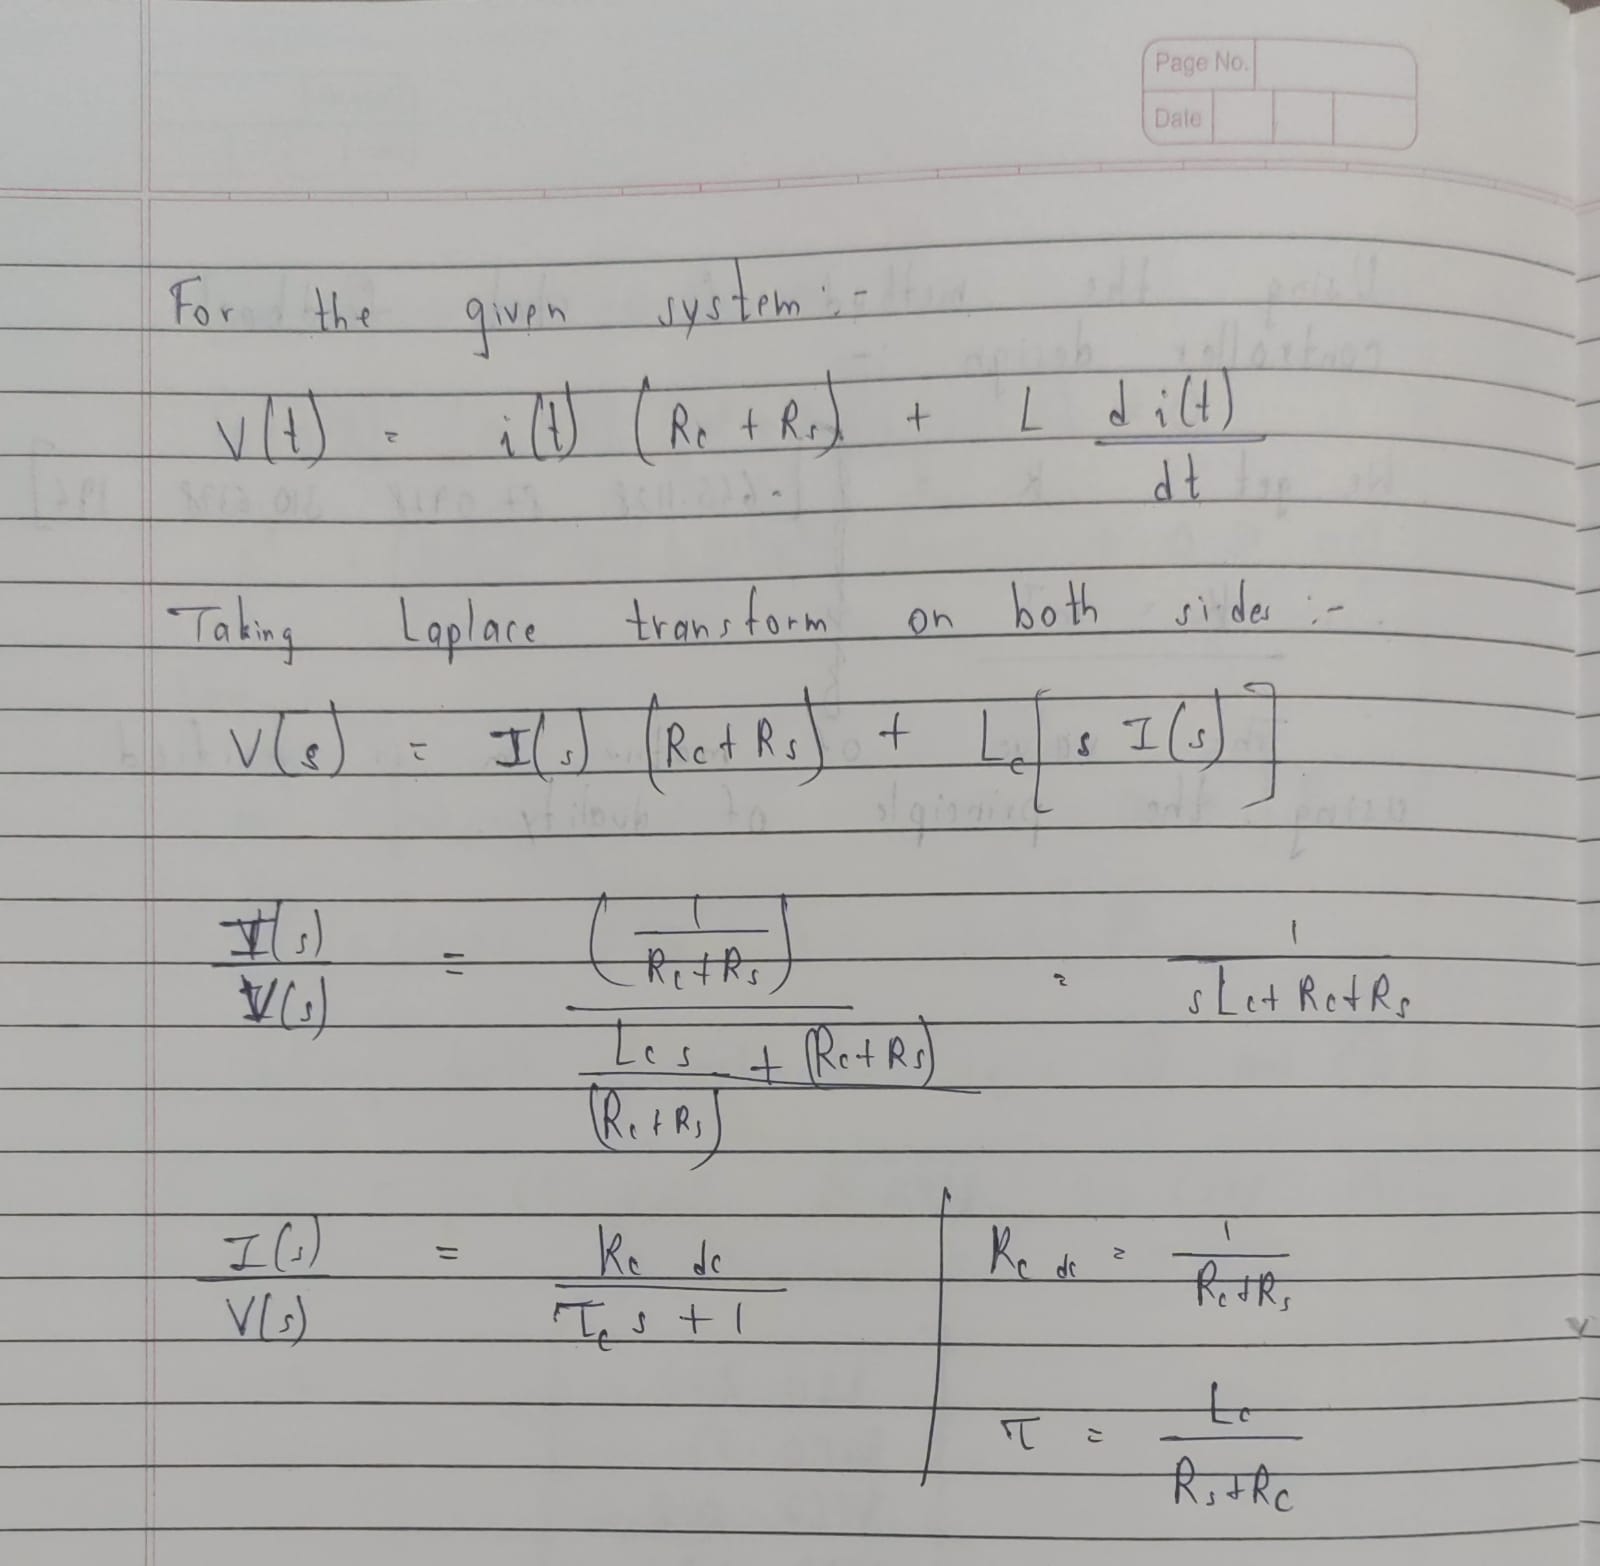 Page No.
Date
For the given system :-
V(t) = i(t) (Rc + Rs) + L d i(t)/dt
Taking Laplace transform on both sides :-
V(s) = I(s) (Rc + Rs) + Lc [s I(s)]
I(s)/V(s) = (1/(Rc+Rs)) / (Lc s + (Rc+Rs)/(Rc+Rs)) = 1/(sLc + Rc + Rs)
I(s)/V(s) = Kc dc/(τc s + 1) | Kc dc = 1/(Rc+Rs)
τ = Lc/(Rs+Rc)